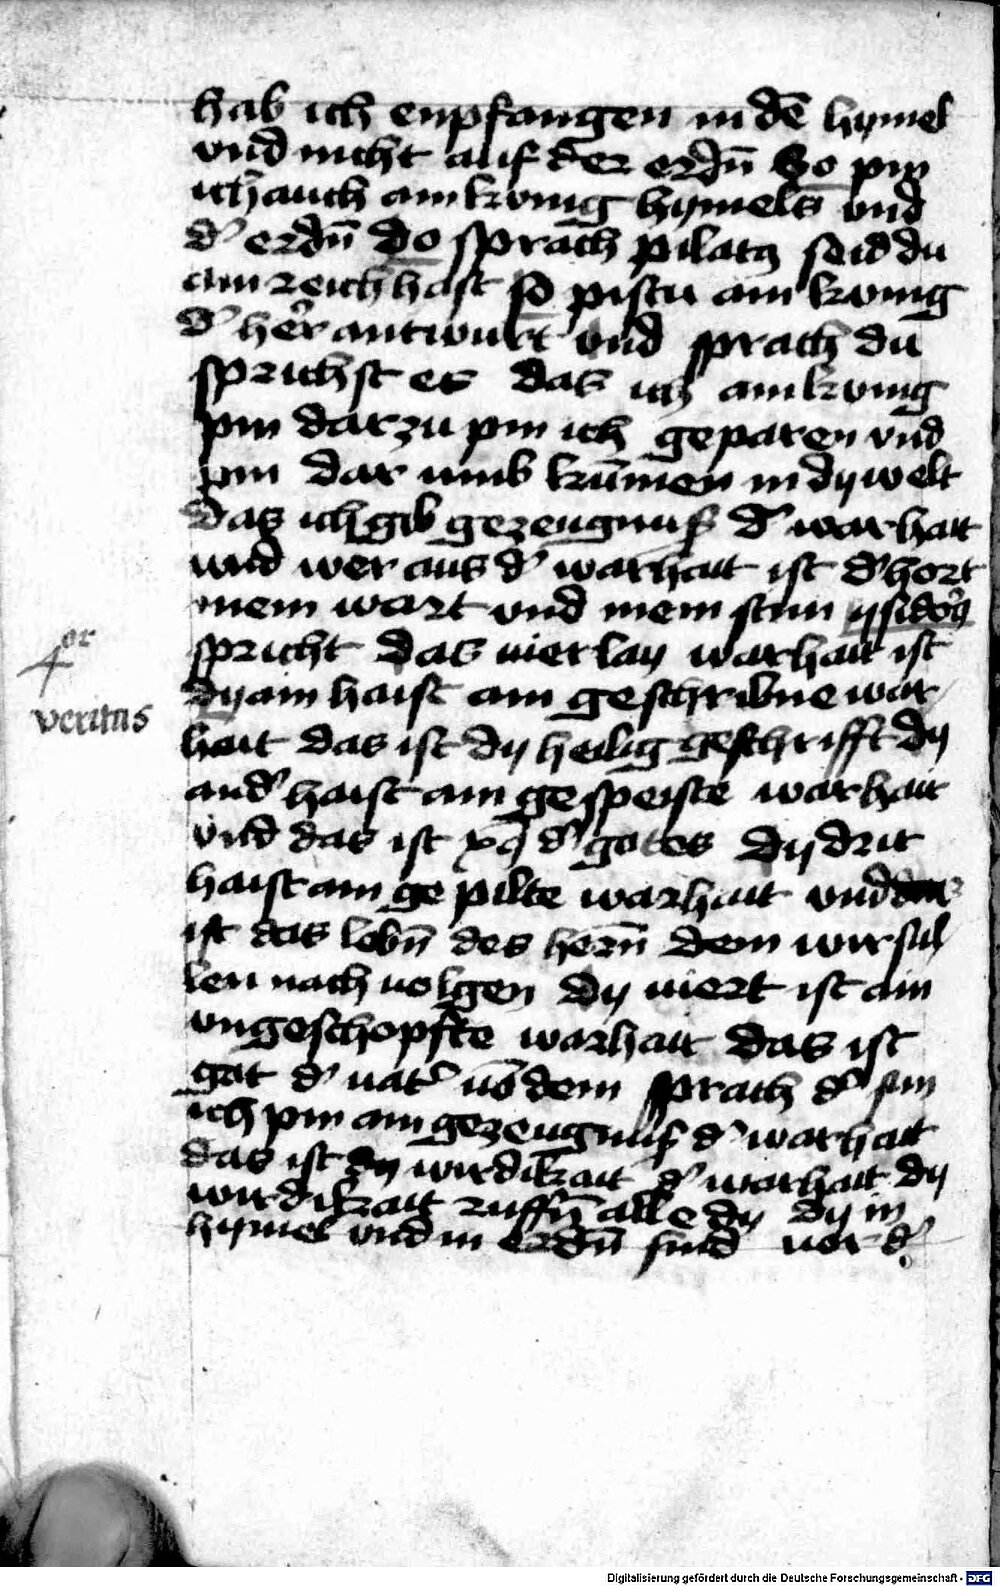 hab ich enpfangen in dē hymel
vnd nicht auf der erdn̄ So pin
ich auch ain kvnig hymels vnd
d' erdn̄ do sprach pilatꝯ seid du
ain reich hast so pistu ain kvnig
d' her antwurt vnd sprach du
sprichst es das ich ain kvnig
pin dar zu pin ich geparen vnd
pin dar vmb kūmen in dy welt
das ich gib gezeugnuß d' warhait
vnd wer aus d' warhait ist d' hort
mein wart vnd mein stim ysidorꝯ
spricht das vier lay warhait ist
dy ain haist ain geschribne war
or
4
veritas
hait das ist dy heilig geschrifft dy
and' haist ain gespeiste warhait
vnd das ist xq d' gotes dy drit
haist ain ge pilte warhait vnd
ist das lebn̄ des hern̄ dem wir sul
len nach uolgen dy viert ist ain
vngeschopfte warhait das ist
got d' uat' vō dem sprach d' sun
ich pin ain gezeugnuß d' warhait
das ist dy wirdikait d' warhait dy
wirdikait ruffn̄ alle dy dy in
hymel vnd in erdn̄ sind vor d'
Digitalisierung gefördert durch die Deutsche Forschungsgemeinschaft - DFG